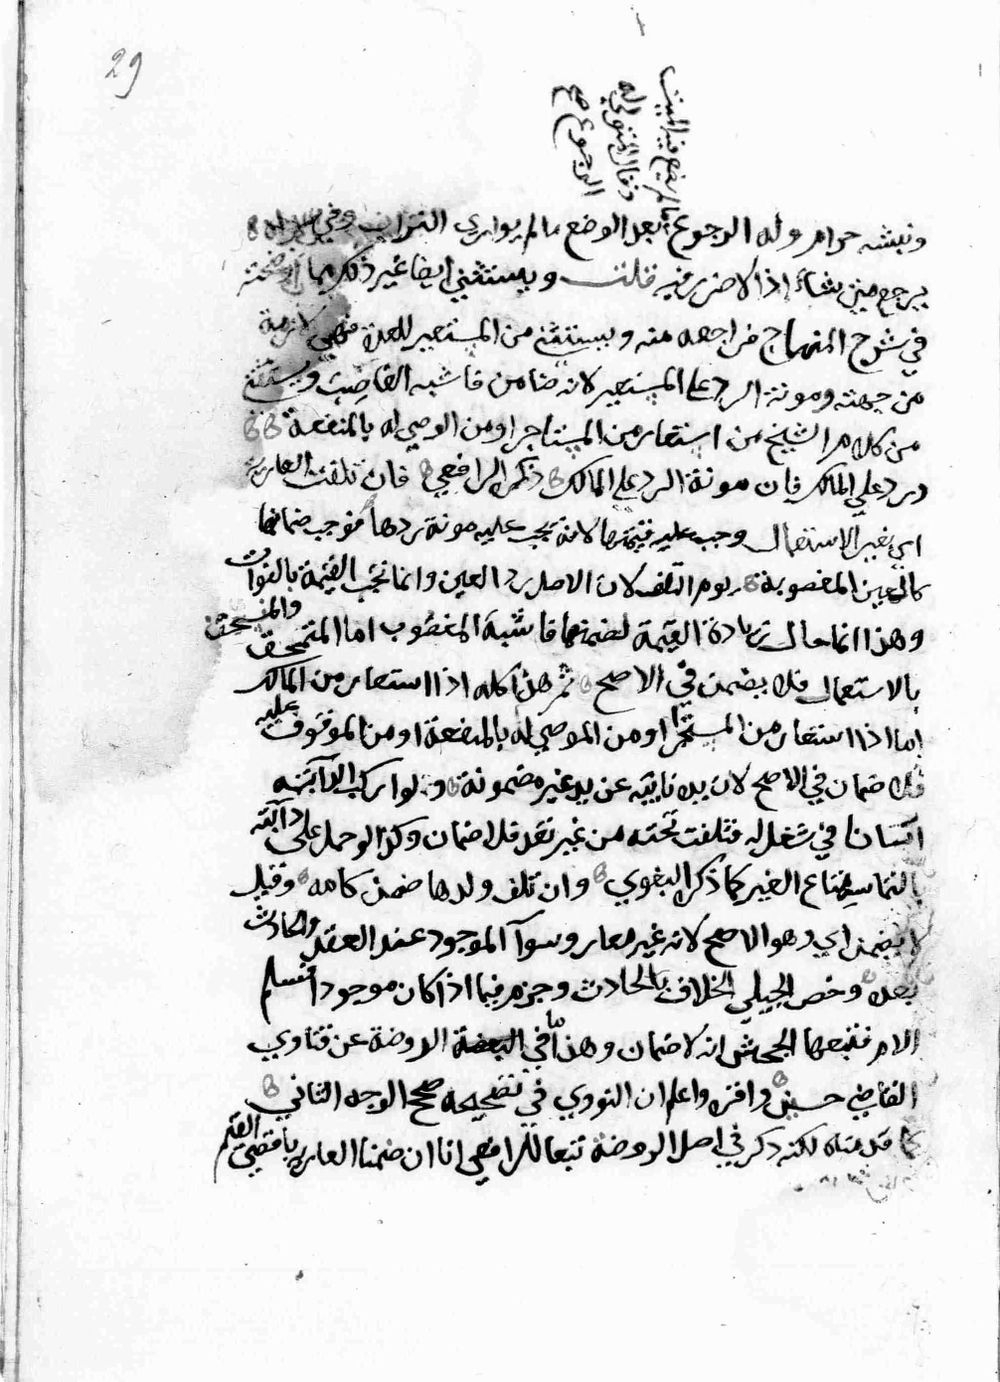 29
ما لم يضع فيه الميت
وقال المتولي له
الرجوع صح
ونبشه حرام وله الرجوع بعد الوضع ما لم يواريه التراب وفي
يرجع متى شاء اذ لا ضرر فيه قلت ويستثني ايضا غير ذلك مما اوضحته
في شرح المنهاج فراجعه منه ويستثني من المستعير للعدة فهي لازمة
من جهته ومونة الرد على المستعير لانه ضامن فاشبه الغاصب ويستثني
من كلام الشيخ من استعار من المستاجر او من الوصي له بالمنفعة
ورد علي المالك فان مونة الرد علي المالك ذكره الرافعي فان تلفت العارية
اي بغير الاستعمال وجب عليه قيمتها لانه يجب عليه مونة ردها فوجب ضمانها
كالعين المغصوبة يوم التلف لان الاصل رد العين وانما تجب القيمة بالفوات
وهذا انما حال زيادة القيمة لضمنها فاشبه المغصوب اما المتمحق والمنسحق
بالاستعمال فلا يضمن في الاصح ثم هذا كله اذا استعار من المالك
اما اذا استعار من المستاجر او من الموصي له بالمنفعة او من الموقوف عليه
فلا ضمان في الاصح لان يده نايبة عن يد غير مضمونة ولو اركب الدابته
انسانا في شغل له فتلفت تحته من غير تعد فلا ضمان وكذا لو حمل على دابته
بالتماسه متاع الغير كما ذكره البغوي وان تلف ولدها ضمن كامه وقيل
لا يضمن اي وهو الاصح لانه غير معار وسوآ الموجود عند العقد والحادث
بعده وخص الجيلي الخلاف بالحادث وجزم فيما اذا كان موجودا فتسلم
الام فتبعها الجحش انه لا ضمان وهذا ما في الروضة عن فتاوي
القاضي حسين واقره واعلم ان النووي في تصحيحه صحح الوجه الثاني
كما قدمناه لكنه ذكر في اصل الروضة تبعا للرافعي انا ان ضمنا العارية باقصي القيم